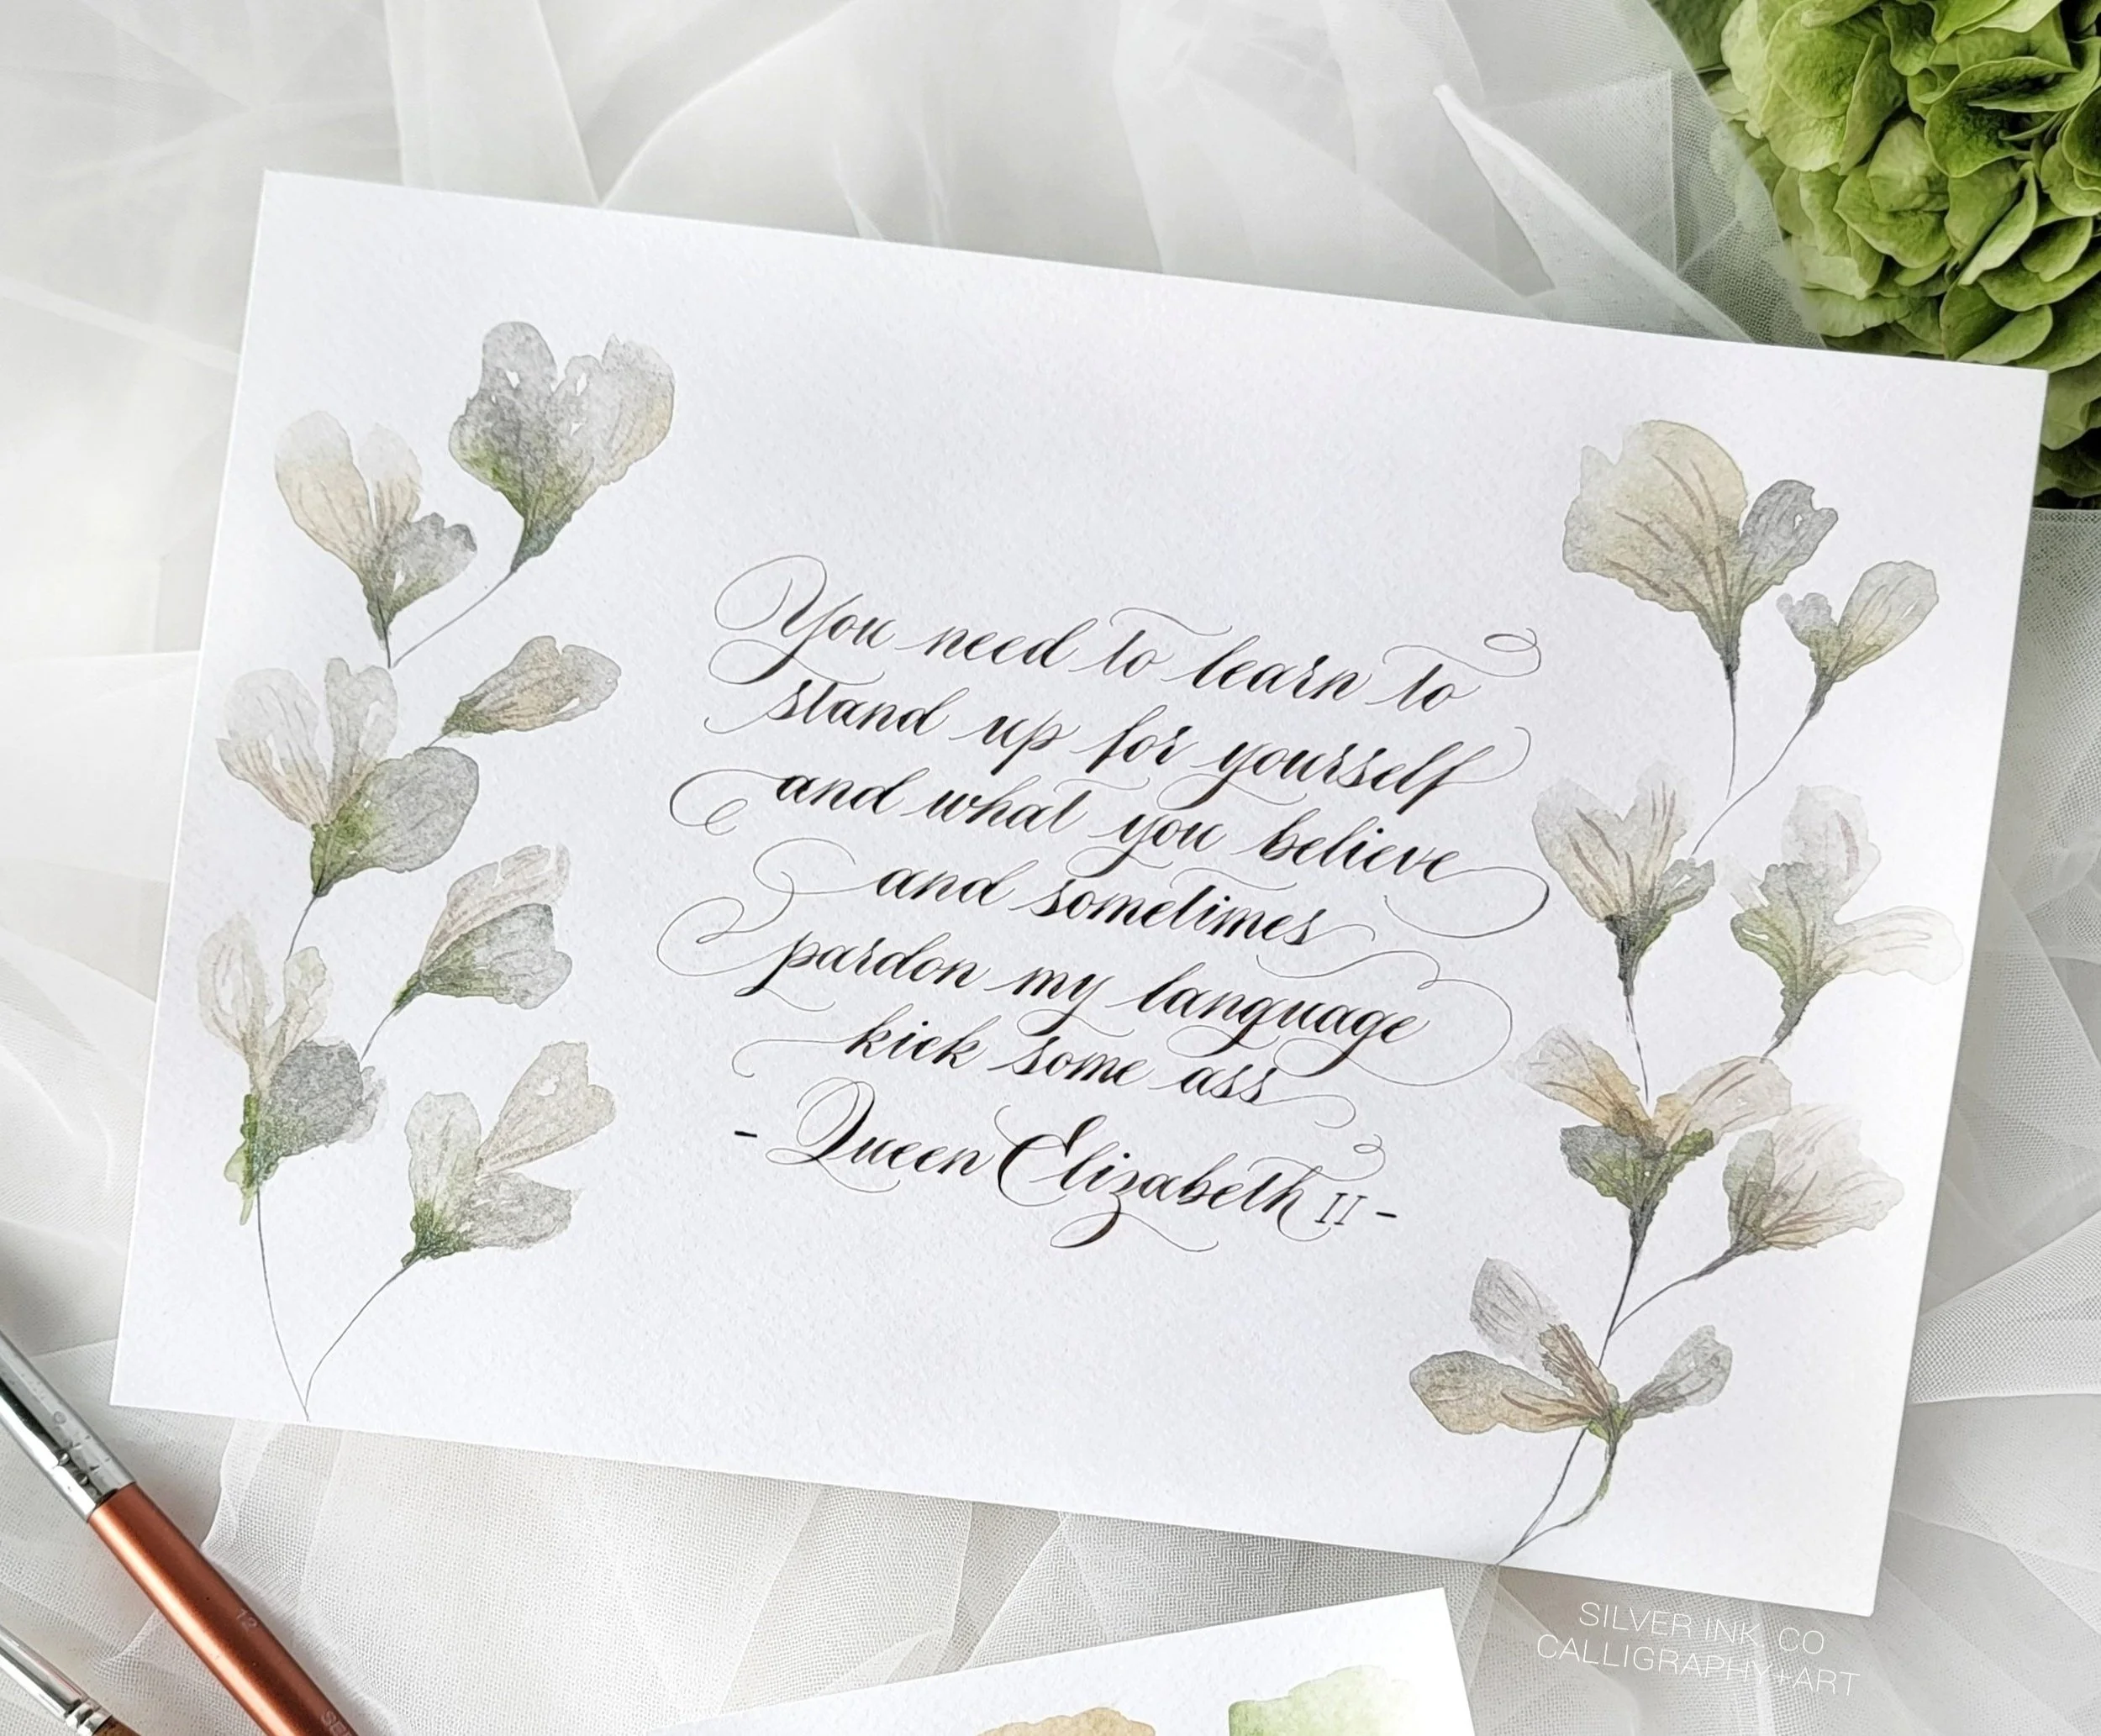 You need to learn to
stand up for yourself
and what you believe
and sometimes
pardon my language
kick some ass
- Queen Elizabeth II -
SILVER INK. CO
CALLIGRAPHY+ART
12